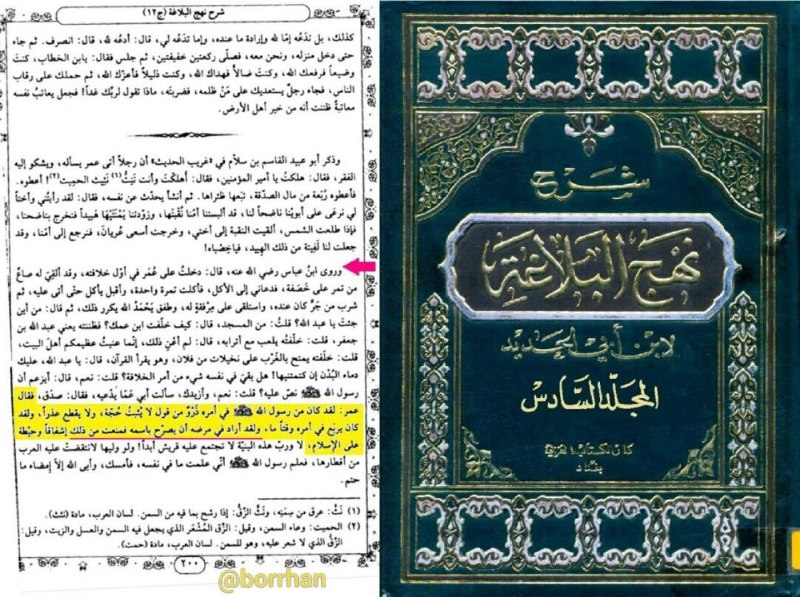 شرح نهج البلاغة (ج١٢)
كذلك، بل تدعُه إمّا لله وإرادة ما عنده، وإما تدعُه لي، قال: أدعُه لله، قال: انصرف. ثم جاء
حتى دخل منزله، ونحن معه، فصلّى ركعتين خفيفتين، ثم جلس فقال: يابن الخطاب، كنتَ
وضيعاً فرفعك الله، وكنتَ ضالاًّ فهداك الله، وكنت ذليلاً فأعزّك الله، ثم حملك على رقاب
الناس، فجاء رجلٌ يستعديك على مَنْ ظلمه، فضربتَه، ماذا تقول لربّك غداً! فجعل يعاتبُ نفسه
معاتبةً ظننت أنه من خير أهل الأرض.
وذكر أبو عبيد القاسم بن سلاّم في «غريب الحديث» أن رجلاً أتى عمر يسأله، ويشكو إليه
الفقر، فقال: هلكتُ يا أمير المؤمنين، فقال: أهلكتَ وأنت تَنِثُّ(١) نَثِيث الحَمِيت(٢)! أعطوه.
فأعطوه رُبَعة من مال الصدَقة، تبعها ظئراها. ثم أنشأ يحدّث عن نفسه، فقال: لقد رأيتُني وأختاً
لي نرعى على أبويْنا ناضحاً لنا، قد ألبستنا أمّنا نُقْبَتَها، وزوّدتنا يَمْنَتَيْها هَبِيداً فنخرج بناضحنا،
فإذا طلعت الشمس، ألقيت النقبة إلى أختي، وخرجت أسعى عُريانَ، فنرجع إلى أمّنا، وقد
جعلت لنا لَفِيتة من ذلك الهبيد، فياخِصْباه!
وروى ابنُ عباس رضي الله عنه، قال: دخلتُ على عُمَر في أوّل خلافته، وقد ألقِيَ له صاعٌ
من تمر على خَصَفة، فدعاني إلى الأكل، فأكلت تمرة واحدة، وأقبل يأكل حتى أتى عليه، ثم
شرب من جَرٍّ كان عنده، واستلقى على مِرْفقةٍ له، وطفق يَحْمَدُ الله يكرر ذلك، ثم قال: من أين
جئتَ يا عبد الله؟ قلتُ: من المسجد، قال: كيف خلّفت ابن عمك؟ فظننته يعني عبد الله بن
جعفر، قلت: خلّفتُه يلعب مع أترابه، قال: لم أعْنِ ذلك، إنّما عنيتُ عظيمكم أهلَ البيت،
قلت: خلّفته يمتح بالغَرْب على نخيلات من فلان، وهو يقرأ القرآن، قال: يا عبد الله، عليك
دماء البُدْن إن كتمتنيها! هل بقيَ في نفسه شيء من أمر الخلافة؟ قلت: نعم، قال: أيزعم أن
رسول الله ﷺ نصّ عليه؟ قلت: نعم، وأزيدك، سألت أبي عمّا يدّعيه، فقال: صدَق، فقال
عمر: لقد كان من رسول الله ﷺ في أمره ذَرْوٌ من قول لا يُثبِتُ حجّة، ولا يقطع عذراً، ولقد
كان يربَع في أمره وقتاً ما، ولقد أراد في مرضه أن يصرّح باسمه فمنعت من ذلك إشفاقاً وحيْطة
على الإسلام، لا وربّ هذه البنيّة لا تجتمع عليه قريش أبداً! ولو وليها لانتقضتْ عليه العرب
من أقطارها، فعلم رسول الله ﷺ أنّي علمت ما في نفسه، فأمسك، وأبى الله إلاّ إمضاء ما
حتم.
(١) نَثَّ: عرق من سِمَنِه، ونَثّ الزِّقُّ: إذا رشح بما فيه من السمن. لسان العرب، مادة (نثث).
(٢) الحميت: وعاء السمن، وقيل: الزِّق المُشْعَر الذي يجعل فيه السمن والعسل والزيت، وقيل:
الزِّقُّ الذي لا شعر عليه، وهو للسمن. لسان العرب، مادة (حمت).
٢٠٠
@borrhan
شرح
نهج البلاغة
لابن أبي الحديد
المجلد السادس
دار الكتاب العربي
بغداد